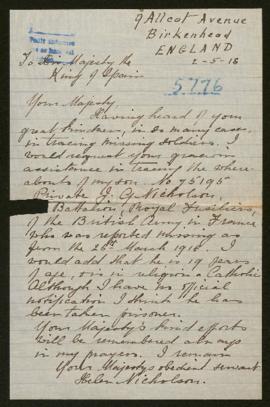 9 Allcot Avenue
Birkenhead
ENGLAND
2-5-18
To His Majesty the
King of Spain
5776
Your Majesty
Having heard of your
great kindness, in so many cases,
in tracing missing soldiers. I
would request your gracious
assistance in tracing the where
abouts of my son No 75195
Private J. G. Nicholson,
Battalion, Royal Fusiliers,
of the British Army in France
who was reported missing as
from the 26th March 1918. I
would add that he is 19 years
of age, & is in religion a Catholic
Although I have no official
notification I think he has
been taken prisoner.
Your Majesty's kind efforts
will be remembered always
in my prayers. I remain
Your Majesty's obedient servant
Helen Nicholson.